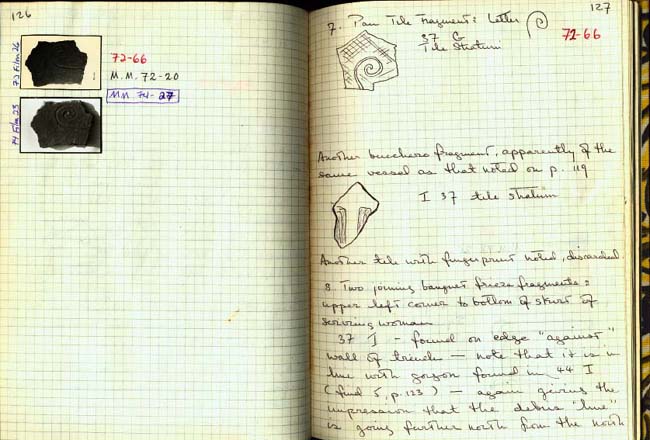 126
73 Film 26
72-66
M.M. 72-20
M.M. 74-27
74 Film 25
127
7. Pan Tile Fragment: Letter
72-66
37 G
Tile Stratum
Another bucchero fragment, apparently of the
same vessel as that noted on p. 119
I 37 tile stratum
Another tile with fingerprint noted, discarded.
8. Two joining banquet frieze fragments:
upper left corner to bottom of skirt of
serving woman
37 I - found on edge "against"
wall of trench — note that it is in
line with gorgon found in 44 I
(find 5, p. 123) — again giving the
impression that the debris "line"
is going further north from the north